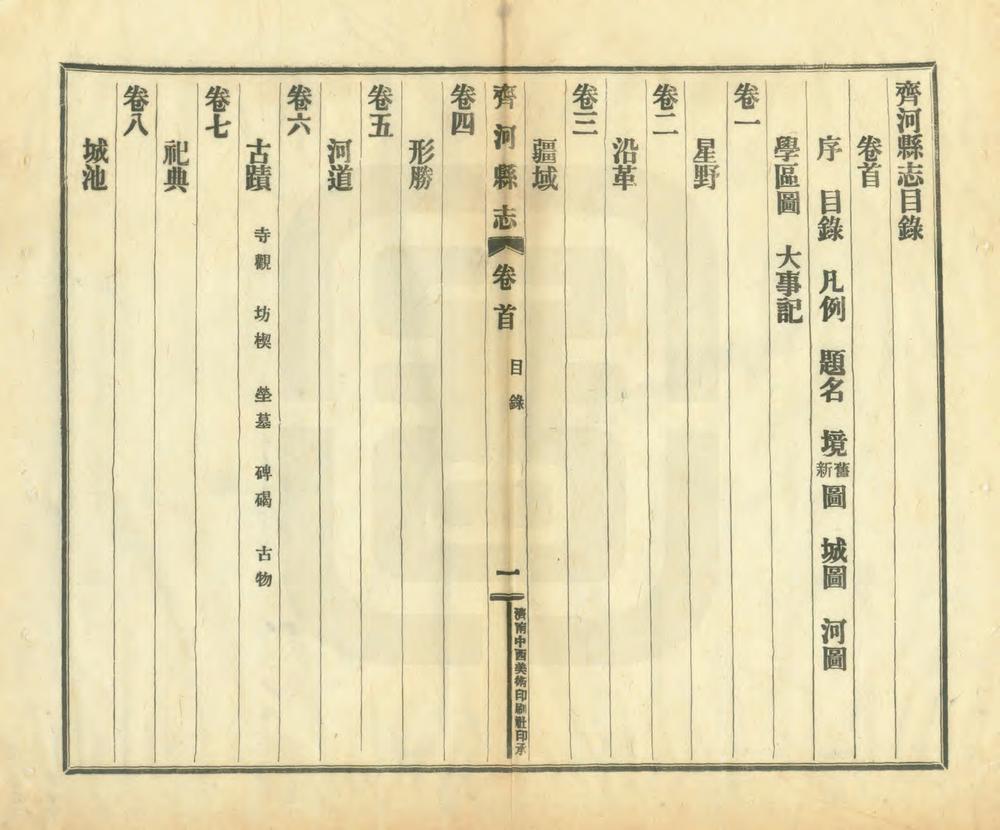 齊河縣志目錄
卷首
序 目錄 凡例 題名 境舊新圖 城圖 河圖
學區圖 大事記
卷一
星野
卷二
沿革
卷三
疆域
齊河縣志 卷首 目錄 一 濟南中西美術印刷社印承
卷四
形勝
卷五
河道
卷六
古蹟 寺觀 坊楔 塋墓 碑碣 古物
卷七
祀典
卷八
城池